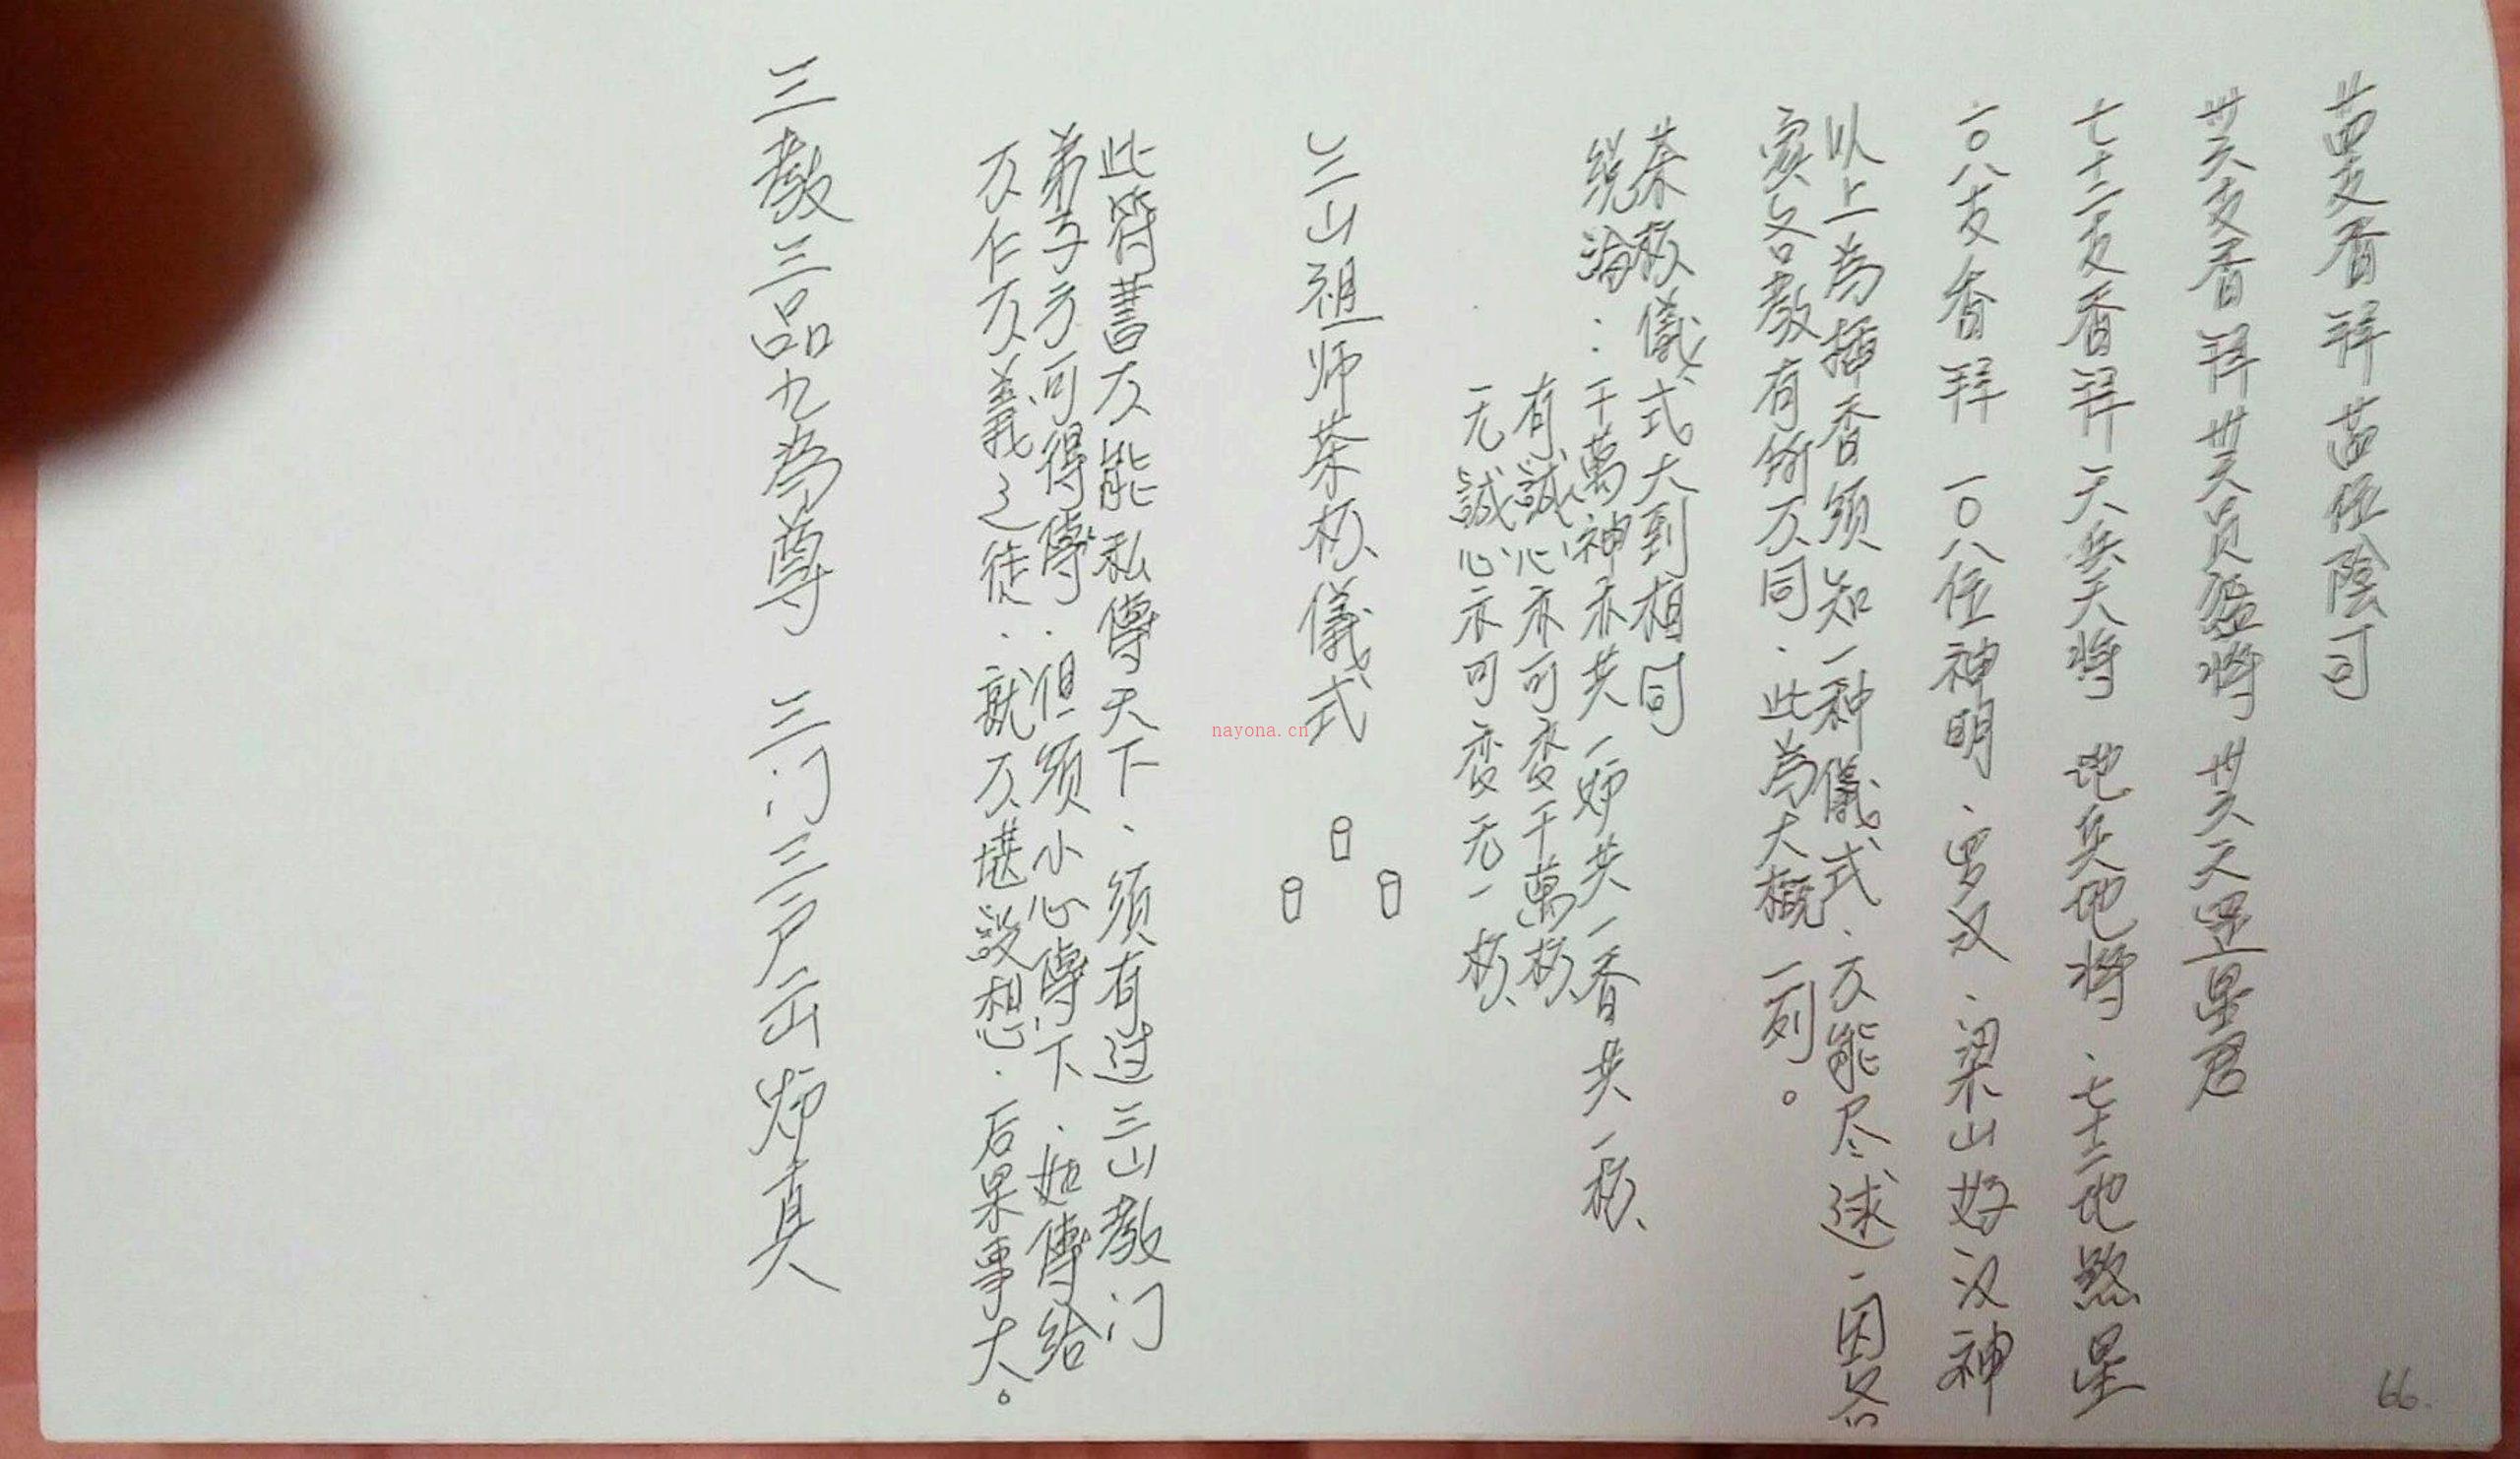 廿四支香拜廿四位陰司
卅六支香拜卅六员猛將 卅六天罡星君
七十二支香拜天兵天將 地兵地將．七十二地煞星
一0八支香拜 一0八位神明．罗汉．梁山好汉神
以上為插香須知一种儀式．不能尽述．因各
家各教有所不同．此為大概一列。
茶杯儀式大到相同
总論：千萬神亦共一炉共一香共一杯
有誠心亦可变千萬杯
无誠心亦可变无一杯
三山祖师茶杯儀式
此符書不能私傳天下．須有过三山教门
弟子方可得傳．但須小心傳下．如傳给
不仁不義之徒．就不堪設想．后果事大。
三教三品九為尊 三门三户出师真
66.
nayona.cn